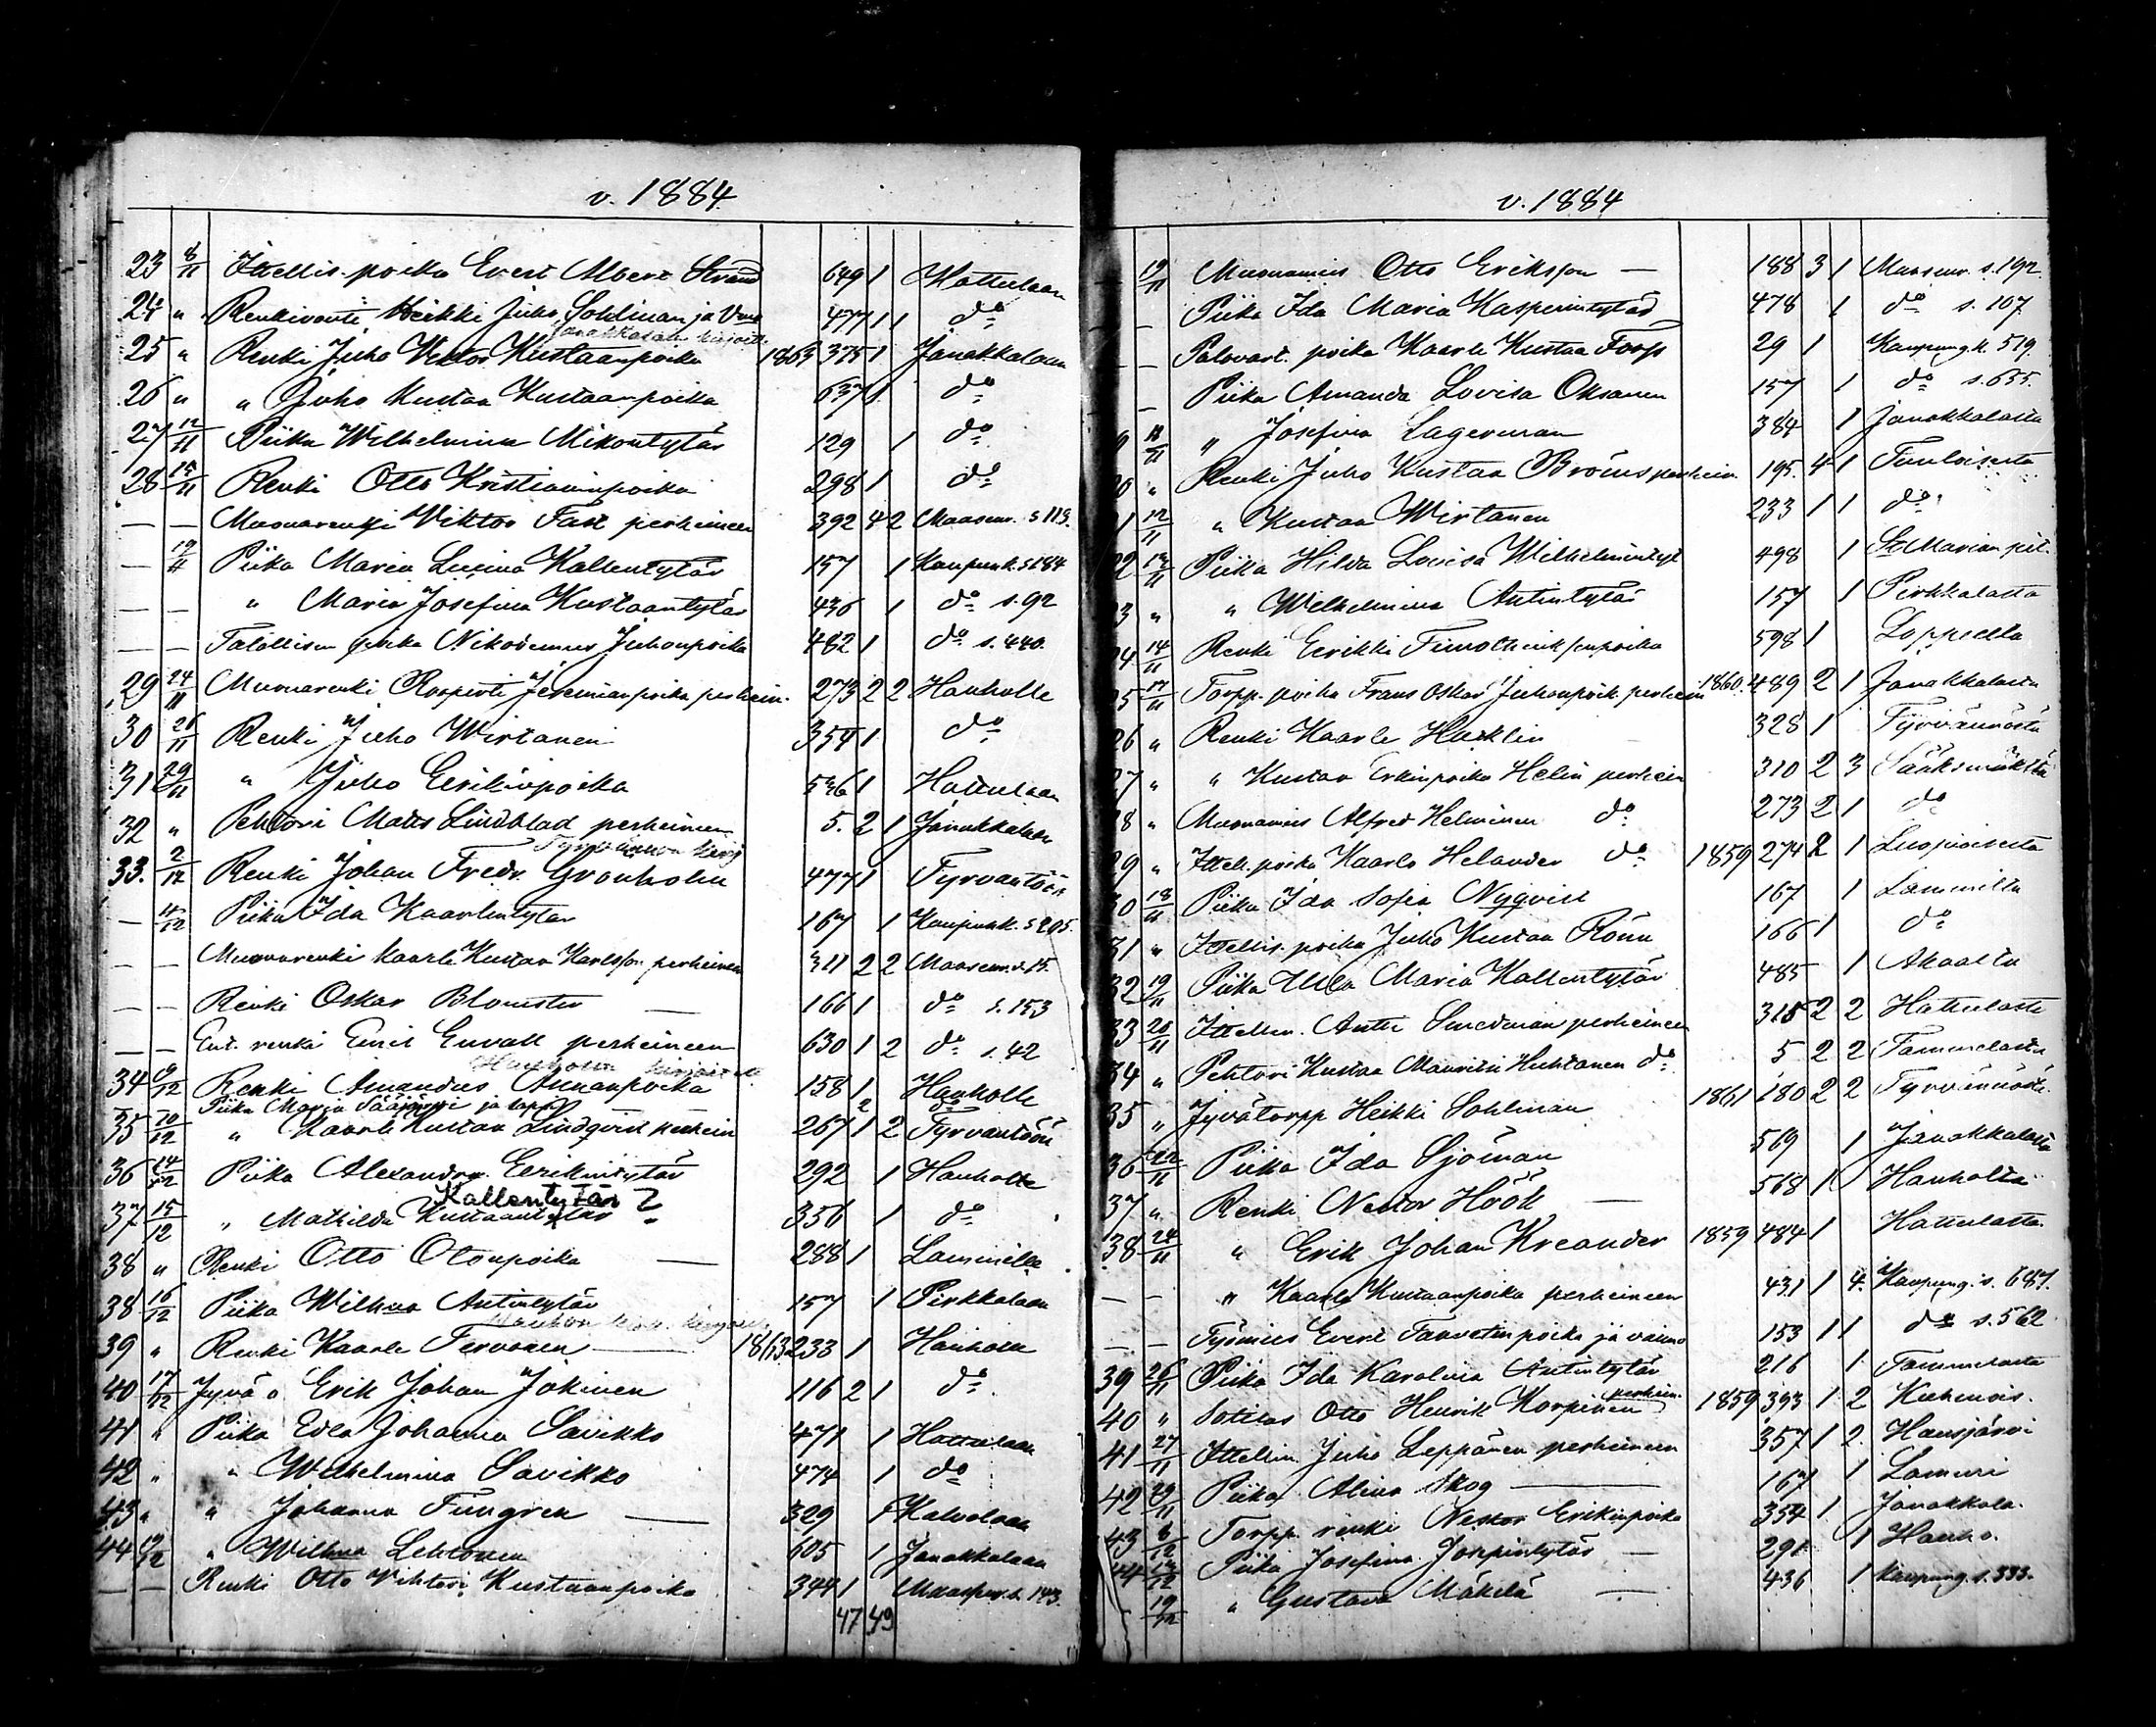 v. 1884
23 8/11 Ittellis. poika Evert Albert Strand 649 1 Hattulaan
24 " Renkivouti Heikki Juho Sohlman ja Vmo 477 1 1 do
Janakkalan kirjoill.
25 " Renki Juho Viktor Kustaanpoika 1863 375 1 Janakkalaan
26 " " Juho Kustaa Kustaanpoika 637 1 do
27 12/11 Piika Wilhelmina Mikontytär 129 1 do
28 15/11 Renki Otto Kristianinpoika 298 1 do
— — Muonarenki Wiktor Fast perheineen 392 4 2 Maaseur. s 113.
— 19/11 Piika Maria Lucina Kallentytär 157 1 Kaupunk. s 184
— — " Maria Josefina Kustaantytär 436 1 do s. 92
— — Talollisen poika Nikodemus Juhonpoika 482 1 do s. 440.
29 24/11 Muonarenki Roopertti Jeremianpoika perhein. 273 2 2 Hauholle
30 26/11 Renki Juho Wirtanen 354 1 do
31 29/11 " Juho Erikinpoika 536 1 Hattulaan
32 " Pehtori Matts Lindblad perheineen 5. 2 1 Janakkalaan
33. 2/12 Renki Johan Fredr. Gronholm 477 1 Tyrväntöön
— 4/12 Piika Ida Kaarlentytär 167 1 Kaupunk. s 205.
— — Muonarenki Kaarle Kustaa Karlsson perheineen 311 2 2 Maaseur. s. 15.
— — Renki Oskar Blomster — 166 1 do s. 153
— — Ent. renki Emil Envall perheineen 630 1 2 do s. 42
34 9/12 Renki Amandus Annanpoika 158 1 Hauholle
Piika Maria Sääjärvi ja lapsi 2 do
35 10/12 " Kaarle Kustaa Lindqvist perhein 267 1 2 Tyrväntöön
36 14/12 Piika Alexandra Eerikintytär 292 1 Hauholle
Kallentytär ?
37 15/12 " Mathilda Kustaantytär 356 1 do
38 " Renki Otto Otonpoika — 288 1 Lammille
38 16/12 Piika Wilhna Antintytär 157 1 Pirkkalaan
39 " Renki Kaarle Tervonen — 1863 233 1 Hauholle
40 17/12 Jyvä o Erik Johan Jokinen 116 2 1 do
41 " Piika Edla Johanna Savikko 471 1 Hattulaan
42 " " Wilhelmina Savikko 474 1 do
43 " " Johanna Tungren — 329 1 Kalvolaan
44 19/12 " Wilhna Lehtonen 605 1 Janakkalaan
— — Renki Otto Vihtori Kustaanpoika 344 1 Maaseur. s. 143.
47 49
v. 1884
19/11 Muonamies Otto Eriksson — 188 3 1 Maaseur. s. 192.
— Piika Ida Maria Kasperintytär 478 1 do s. 107
— Palovart. poika Kaarle Kustaa Forss 29 1 Kaupung. k. 519.
— Piika Amanda Lovisa Oksanen 157 1 do s. 655.
9 11/11 " Josefina Lagerman 384 1 Janakkalasta
20 " Renki Juho Kustaa Broms perhein. 195. 4 1 Tuuloisesta
21 12/11 " Kustaa Wirtanen 233 1 1 do
22 12/11 Piika Hilda Lovisa Wilhelmintyt 498 1 St. Marian pit.
23 " " Wilhelmina Antintytär 157 1 Pirkkalasta
24 14/11 Renki Eerikki Timotheuksenpoika 598 1 Loppielta
25 17/11 Torpp. poika Frans Oskar Juhonpoik. perhein 1860. 489 2 1 Janakkalasta
26 " Renki Kaarle Hacklin 328 1 Tyrvännöstä
27 " " Kustaa Erkinpoika Helin perhein 310 2 3 Sääksmäeltä
28 " Muonamies Alfred Helminen do 273 2 1 do
29 " Ittell. poika Kaarlo Helander do 1859 274 2 1 Luopioisista
30 18/11 Piika Ida Sofia Nyqvist 167 1 Lammilta
31 " Ittellis. poika Juho Kustaa Rönn 166 1 do
32 19/11 Piika Ulla Maria Kallentytär 485 1 Akaalta
33 20/11 Ittellin. Antti Smedman perheineen 315 2 2 Hattulasta
34 " Pehtori Kustaa Mauritsi Huhtanen do 5 2 2 Tammelasta
35 " Jyvätorpp Heikki Sohlman 1861 180 2 2 Tyrvännöstä
36 22/11 Piika Ida Sjöman 569 1 Janakkalasta
37 " Renki Nestor Höök — 568 1 Hauholta
38 24/11 " Erik Johan Kreander 1859 484 1 Hattulasta
— — " Kaarle Kustaanpoika perheineen 431 1 4. Kaupung. s. 687.
— — Työmies Evert Taavetinpoika ja vaimo 153 1 1 do s. 562
39 26/11 Piika Ida Karolina Antintytär 216 1 Tammelasta
40 " Sotilas Otto Henrik Korpinen perhein. 1859 393 1 2 Kuhmois.
41 27/11 Ittellin Juho Leppänen perheineen 357 1 2 Hausjärvi
42 29/11 Piika Alina Skog — 167 1 Lammi
43 6/12 Torpp. renki Nestor Erikinpoika 354 1 Janakkala.
44 13/12 Piika Josefina Josepintytär — 291 1 Hauho.
— 19/12 " Gustava Mäkelä — 436 1 Kaupung. s. 333.